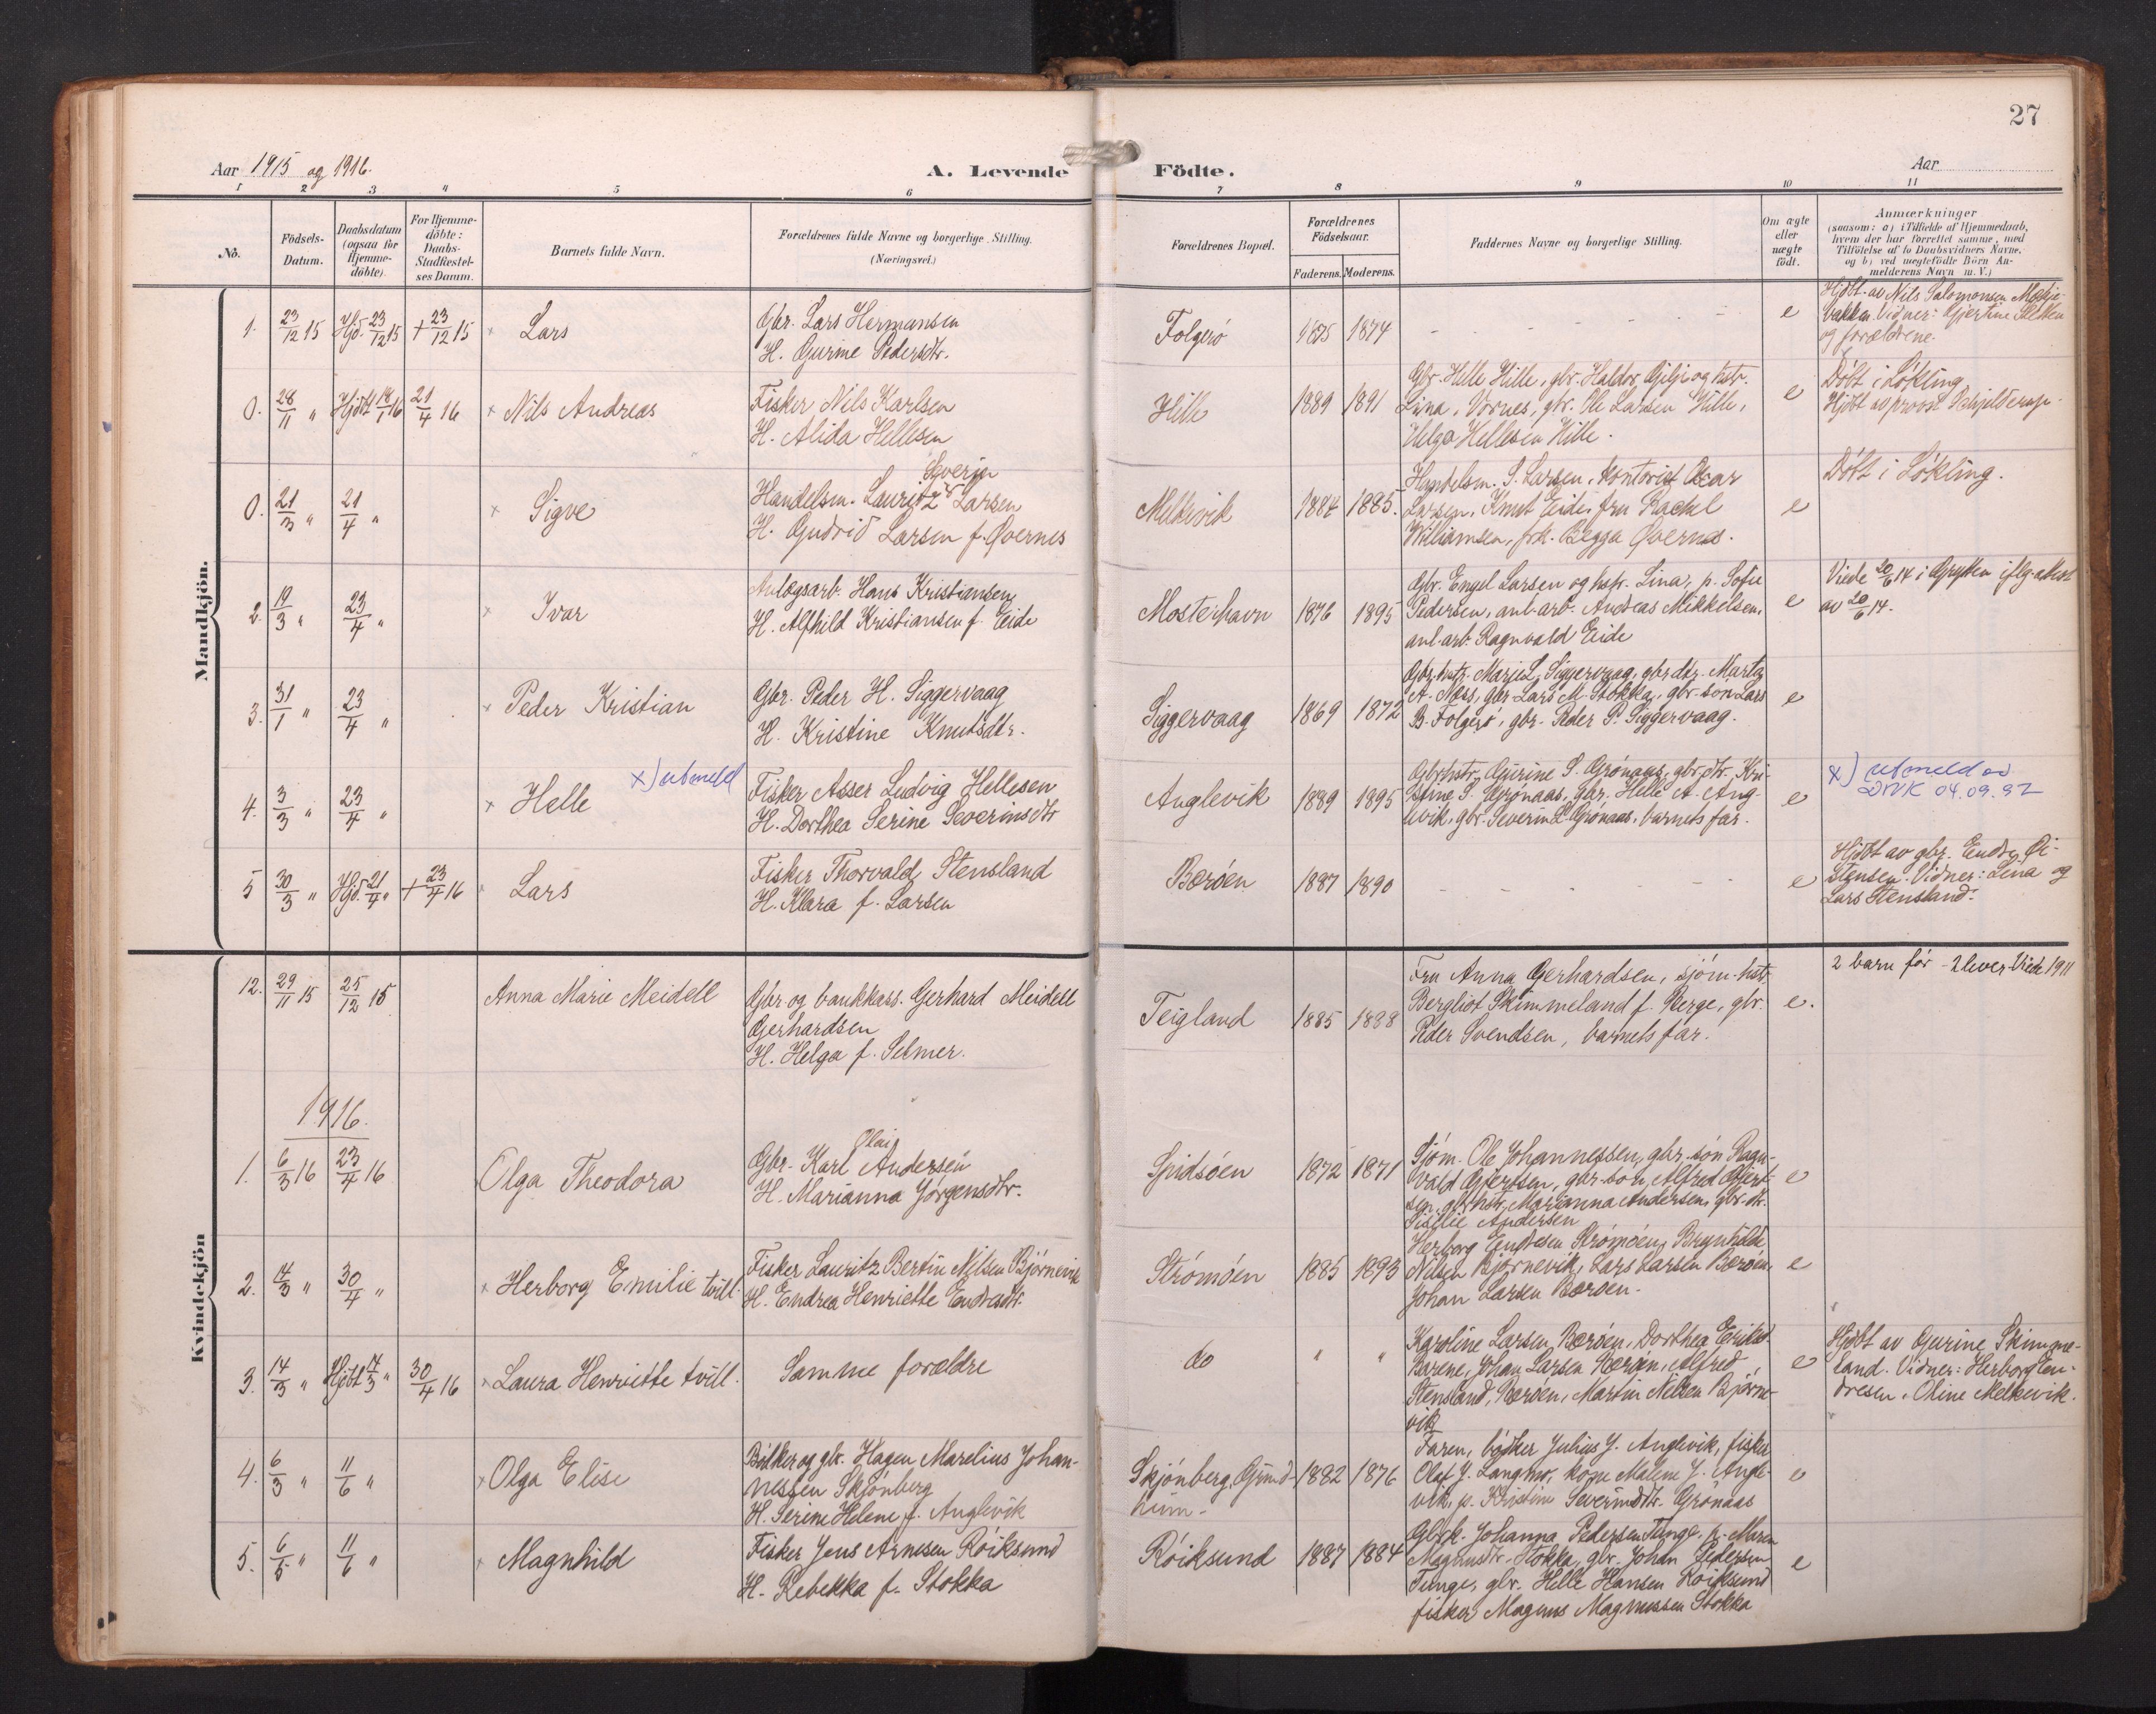 27
Aar 1915 og 1916.
A. Levende Födte.
Aar
1 2 3 4 5 6 7 8 9 10 11
No.
Födsels-Datum.
Daabsdatum (ogsaa for Hjemme-döbte).
For Hjemme-döbte: Daabs-Stadfæstel-ses Datum.
Barnets fulde Navn.
Forældrenes fulde Navne og borgerlige Stilling. (Næringsvei.)
Forældrenes Bopæl.
Forældrenes Födselsaar.
Faderens. Moderens.
Faddernes Navne og borgerlige Stilling.
Om ægte eller uægte födt.
Anmærkninger
(saasom: a) i Tilfælde af Hjemmedaab, hvem der har forrettet samme, med Tilföielse af to Daabsvidners Navne, og b) ved uægtefödte Börn An-melderens Navn m. V.)
Mandkjön.
1. 23/12 15 Hjd. 23/12 15 + 23/12 15 × Lars
Gbr. Lars Hermansen
H. Gurine Pedersdtr.
Folgerö 1875 1874 e
Hjdbt. av Nils Salomonsen
Vidner: Gjertine Sletten
og forældrene.
0. 28/11 " Hjdbt 18/1 16 21/4 16 × Nils Andreas
Fisker Nils Karlsen
H. Alida Hellesen
Hille 1889 1891
Gbr. Helle Hille, gbr. Haldor Gilje og hstr.
Lina, Vornes, gbr. Ole Larsen Hille,
Helga Hellesen Hille.
e
Döbt i Lökling
Hjdbt av provst
0. 21/3 " 21/4 " × Sigve
Sverin
Handelsm. Lauritz Larsen
H. Gudrid Larsen f. Qvernes
Melkevik 1884 1885.
Handelsm. S. Larsen, kontorist Oscar
Larsen, Knut Eide, fru Rachel
Williamsen, frk. Begga Qvernes.
e
Döbt i Lökling.
2. 19/3 " 23/4 " × Ivar
Anlægsarb. Hans Kristiansen
H. Alfhild Kristiansen f. Eide
Mosterhavn 1876 1895
Gbr. Engel Larsen og hstr. Lina, p. Sofie
Pedersen, anl-arb. Andreas Mikkelsen,
anl-arb. Ragnvald Eide
e
Viede 20/6 14 i Grytten iflg. attest
av 20/6 14.
3. 31/1 " 23/4 " × Peder Kristian
Gbr. Peder H. Siggervaag
H. Kristine Knutsdtr.
Siggervaag 1869 1872
Gbr. hstr. Marie L. Siggervaag, gbr dtr. Marta
A. Næss, gbr. Lars M. Stokka, gbr. sön Lars
B. Folgerö, gbr. Peder P. Siggervaag.
e
4. 3/3 " 23/4 " × Helle ×) utmeldt
Fisker Asser Ludvig Hellesen
H. Dorthea Serine Severinsdtr
Anglevik 1889 1895
Gbrhstr. Gurine S. Grönaas, gbr dtr. Kri-
stine S. Grönaas, gbr. Helle A. Ang-
levik, gbr. Severin L. Grönaas, barnets far.
e
×) utmeldt av
DNK 04.09.92
5 30/3 " Hjd. 21/4 " + 23/4 16 Lars
Fisker Thorvald Stensland
H. Klara f. Larsen
Beröen 1887 1890 e
Hjdbt av gbr. Endre Øi-
stensen. Vidner: Lina og
Lars Stensland.
Kvindekjön
12. 29/11 15 25/12 15 Anna Marie Meidell
Gbr og bankkass. Gerhard Meidell
Gerhardsen
H. Helga f. Selmer.
Teigland 1885 1888
Fru Anna Gerhardsen, sjöm-hstr.
Bergliot Skimmeland f. Berge, gbr.
Peder Svendsen, barnets far.
e.
2 barn för - 2 lever. Viede 1911
1916.
1. 6/3 16 23/4 16 Olga Theodora
Olai
Gbr. Karl Andersen
H. Marianna Jörgensdtr.
Spidsöen 1872 1871
Sjöm. Ole Johannessen, gbr. sön Ragn-
vald Gjertsen, gbr-sön Alfred Gjert-
sen, gbrhstr. Marianna Andersen, gbr. dtr.
Sisilie Andersen
e
2. 14/3 " 30/4 " × Herborg Emilie tvill.
Fisker Lauritz Bertin Nilsen Björnevik
H. Endrea Henriette Endresdtr.
Strömöen 1885 1893
Herborg Endresen Strömöen, Brynhilda
Nilsen Björnevik, Lars Larsen Beröen,
Johan Larsen Beröen.
e
3. 14/3 " Hjdbt 14/3 " 30/4 16 × Laura Henriette tvill.
Samme forældre
do " "
Karoline Larsen Beröen, Dorthea
Johan Larsen Beröen, Alfred
Stensland, Beröen, Martin Nilsen Björne-
vik
e
Hjdbt av Gurine Skimme-
land. Vidner: Herborg En-
dresen, Oline Melkevik.
4. 6/3 " 11/6 " × Olga Elise
og gbr. Hagen Marelius Johan-
nessen Skjönberg
H. Serine Helene f. Anglevik
Skjönberg, 1882 1876
Faren, bödker Julius J. Anglevik, fisker
Olaf J. Langmo, kone Malene J. Angle-
vik, p. Kristine Severinsdtr. Grönaas
e
5. 6/5 " 11/6 " × Magnhild
Fisker Jens Arnesen Röiksund
H. Rebekka f. Stokka
Röiksund 1887 1884
Gbrk. Johanna Pedersen Tunge, p. Maren
Magnusdtr. Stokka, gbr. Johan Pedersen
Tunge, gbr. Helle Hansen Röiksund
fisker Magnus Magnussen Stokka
e